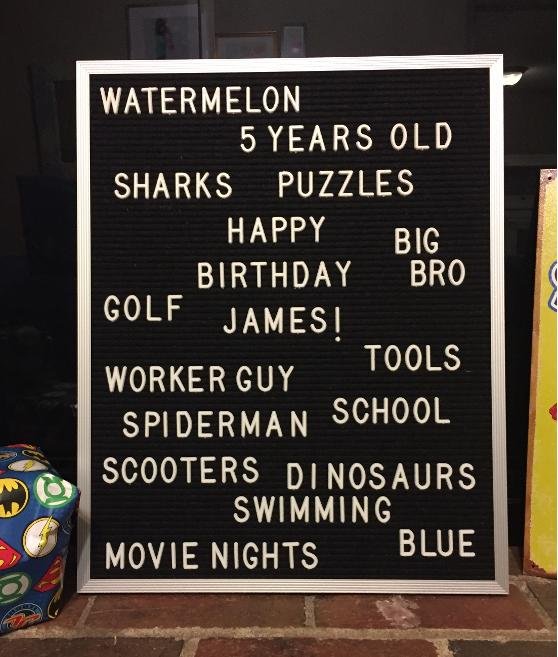 WATERMELON
5 YEARS OLD
SHARKS PUZZLES
HAPPY
BIG
BIRTHDAY BRO
GOLF
JAMES!
TOOLS
WORKER GUY
SCHOOL
SPIDERMAN
SCOOTERS DINOSAURS
SWIMMING
BLUE
MOVIE NIGHTS